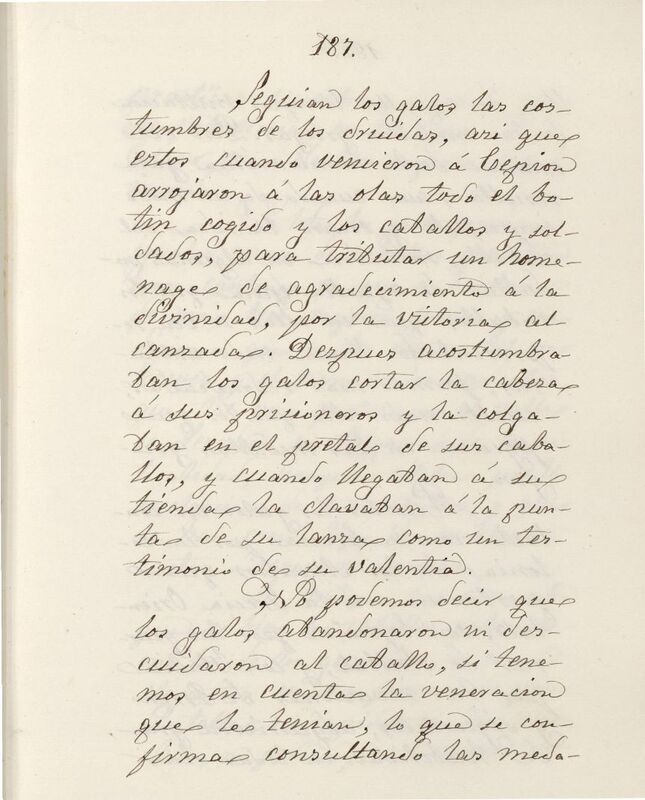 187.
Seguian los galos, las cos-
tumbres de los druidas, asi que
estos cuando vencieron á Cepion
arrojaron á las olas todo el bo-
tin cogido y los caballos y sol-
dados, para tributar un home-
nage de agradecimiento á la
divinidad, por la victoria al
canzada. Despues acostumbra-
ban los galos cortar la cabeza
á sus prisioneros y la colga-
ban en el pretal de sus caba-
llos, y cuando llegaban á su
tienda la clavaban á la pun-
ta de su lanza como un tes-
timonio de su valentia.
No podemos decir que
los galos abandonaron ni des-
cuidaron al caballo, si tene-
mos en cuenta la veneracion
que le tenian, lo que se con-
firma consultando las meda-